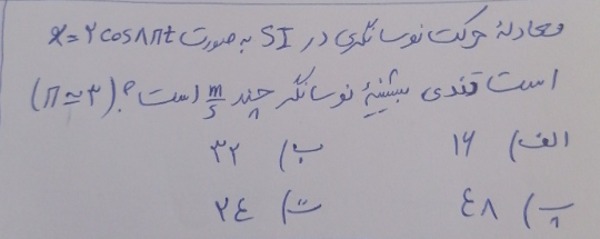 معادلهٔ حرکت نوسانگری در SI به صورت x = ۲ cos ۸πt
است تندی بیشینهٔ نوسانگر چند m/s است؟ (π ≃ ۳)
الف) ۱۶ ب) ۳۲
پ) ۴۸ ت) ۲۴